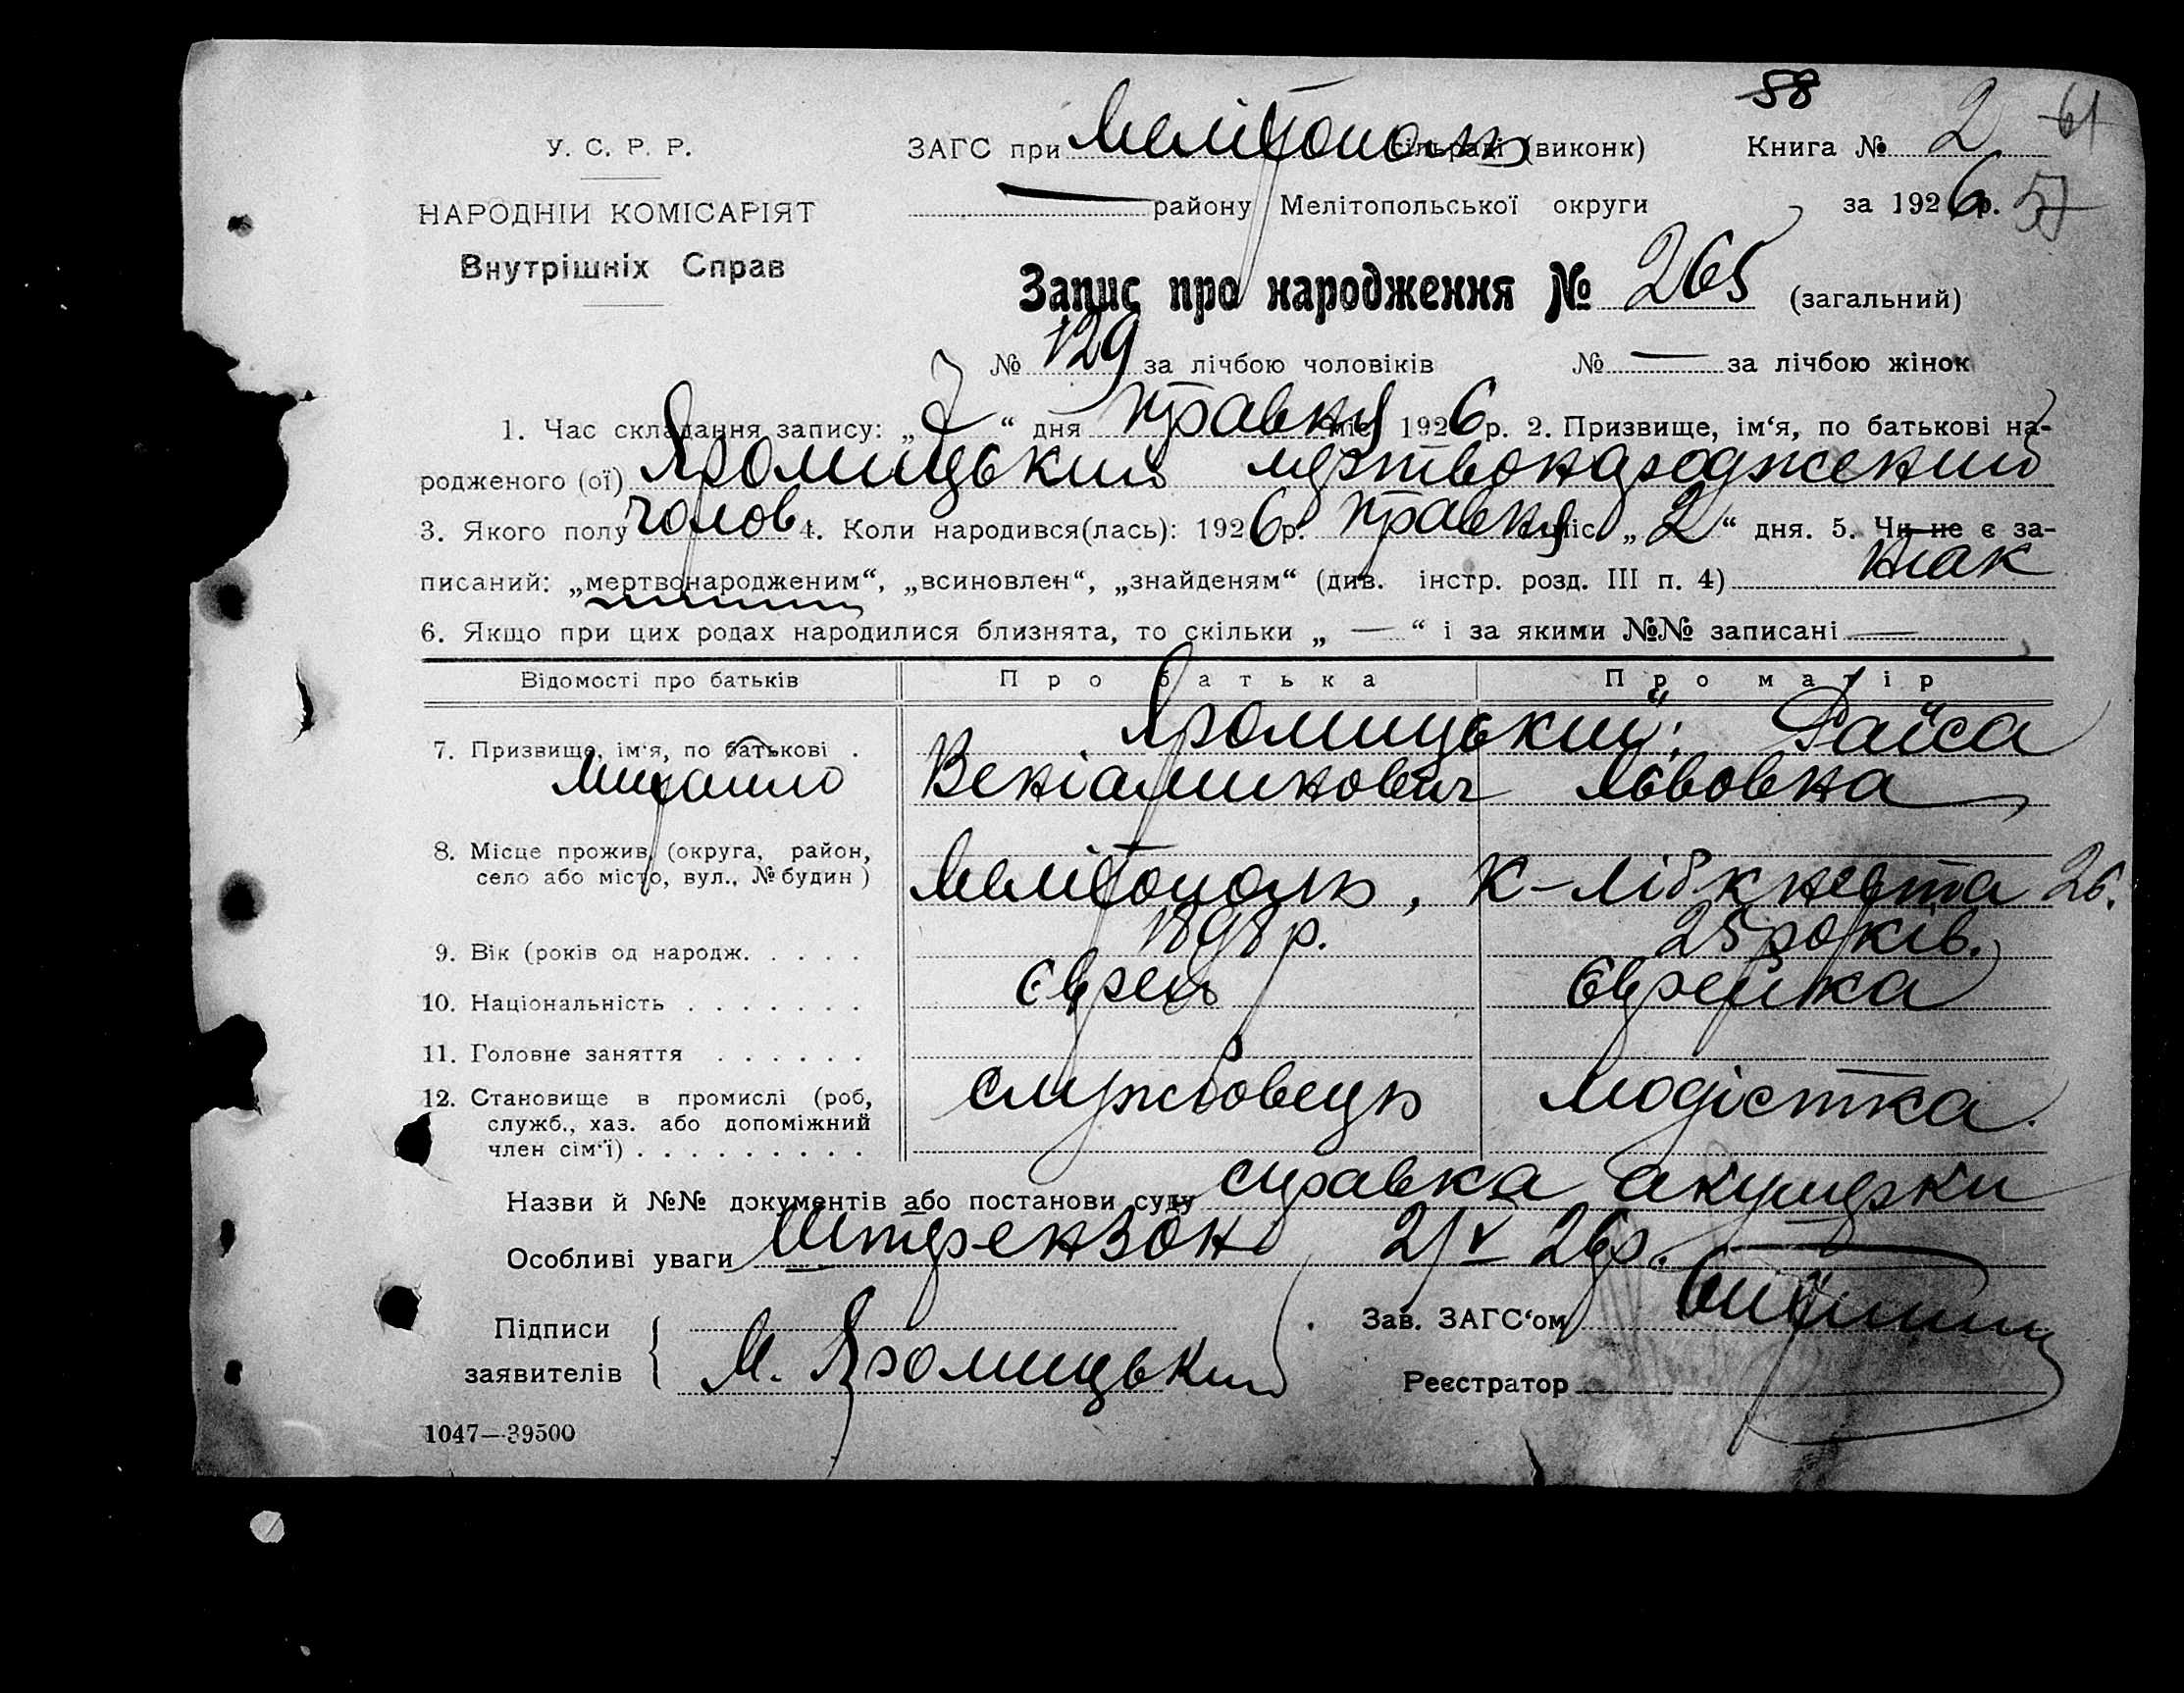 58
У. С. Р. Р. ЗАГС при Мелітополь сільраді (виконк) Книга № 2 61
НАРОДНІЙ КОМІСАРІЯТ — району Мелітопольської округи за 1926 р. 57
Внутрішніх Справ
Запис про народження № 265 (загальний)
№ 129 за лічбою чоловіків № — за лічбою жінок
1. Час складання запису: „7“ дня травня міс. 1926 р. 2. Призвище, ім‘я, по батькові на-
родженого (ої) Яромицький мертвонароджений
3. Якого полу чолов 4. Коли народився(лась): 1926 р. травня міс. „2“ дня. 5. Чи не є за-
писаний: „мертвонародженим“, „всиновлен“, „знайденям“ (див. інстр. розд. III п. 4) так
6. Якщо при цих родах народилися близнята, то скільки „ — “ і за якими №№ записані —
Відомості про батьків Про батька Про матір
7. Призвище, ім‘я, по батькові . Яромицький; Раїса
Михайло Веніамінович Львовна
8. Місце прожив. (округа, район,
село або місто, вул., № будин ) Мелітополь, К-Лібкнехта 26.
9. Вік (років од народж. . . . . 1898 р. 25 років.
10. Національність . . . . . . . Єврей Єврейка
11. Головне заняття . . . . . .
12. Становище в промислі (роб, службовець модістка.
служб., хаз. або допоміжний
член сім‘ї) . . . . . . . . .
Назви й №№ документів або постанови суду справка акушерки
Особливі уваги Штерензон 2/V 26 р.
Підписи Зав. ЗАГС‘ом
заявителів М. Яромицький Реєстратор
1047—39500